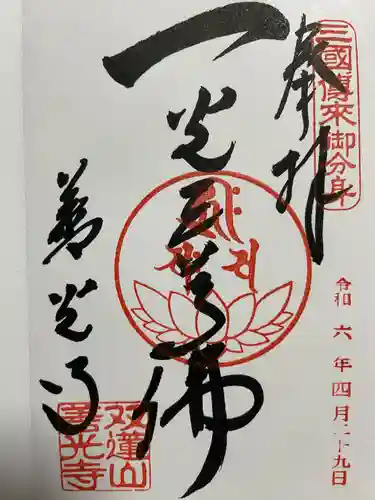 三國傳来御分身
奉拝
令和六年四月二十九日
一光三尊佛
善光寺
双蓮山
善光寺